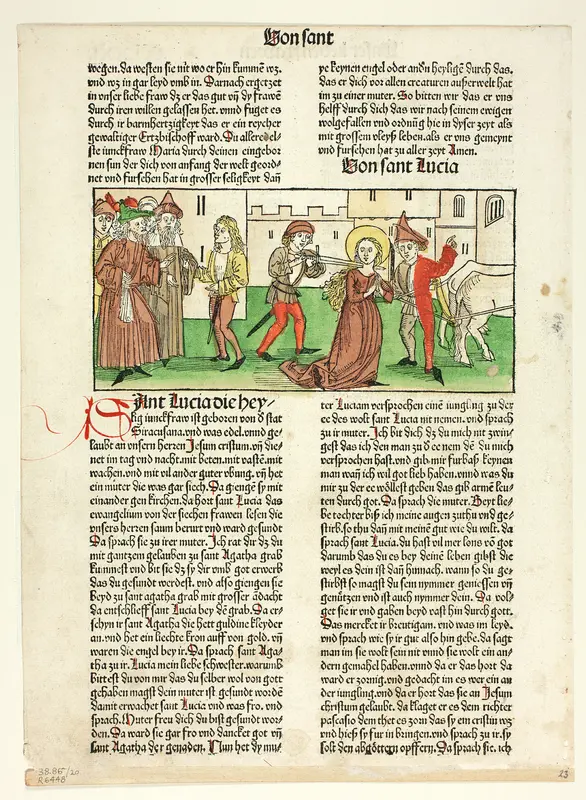 Von sant
wegen. da westen sie nit wo er hin kummē wz.
vnd wz in gar leyd vmb in. Darnach ergetzet
in vnser liebe fraw dz er das gut vñ dy frawē
durch iren willen gelassen het. vnnd fuget es
durch ir barmhertzigkeyt das er ein reycher
gewaltiger Ertzbischoff ward. Du alleredel-
ste iunckfraw Maria durch deinen eingebor
nen sun der dich von anfang der welt geord-
net vnd fursehen hat in grosser seligkeyt dañ
ye keynen engel oder andn̄ heylige durch das.
das er dich vor allen creaturen außerwelt hat
im zu einer muter. So bitten wir das er vns
helff durch dich das wir nach seinem ewigen
wolgefallen vnd ordnūg hie in dyser zeyt als
mit grossem vleyß leben. als er vns gemeynt
vnd fursehen hat zu aller zeyt Amen.
Von sant Lucia
Sant Lucia die hey-
lig iunckfraw ist geboren von d̄ stat
Siracusana. vnd was edel. vnnd ge-
laubt an vnsern herren Jesum cristum. vñ die-
net im tag vnd nacht. mit beten. mit vastē. mit
wachen. vnd mit vil ander guter vbung. vñ het
ein muter die was gar siech. Da giengē sy mit
einander gen kirchen. da hort sant Lucia das
ewangelium von der siechen frawen lesen die
vnsers herren saum berurt vnd ward gesundt
Da sprach sie zu irer muter. Ich rat dir dz du
mit gantzem gelauben zu sant Agatha grab
kummest vnd bit sie dz sy dir vmb got erwerb
das du gesundt werdest. vnd also giengen sie
beyd zu sant agatha grab mit grosser ādacht
da entschlieff sant Lucia bey dē grab. Da er-
schyn ir sant Agatha die hett guldine kleyder
an. vnd het ein liechte kron auff von gold. vñ
waren die engel bey ir. Da sprach sant Aga-
tha zu ir. Lucia mein liebe schwester. warumb
bittest du von mir das du selber wol von gott
gehaben magst dein muter ist gesundt wordē
damit erwachet sant Lucia vnd was fro. vnd
sprach. Muter freu dich du bist gesundt wor-
den. Da ward sie gar fro vnd dancket got vñ
sant Agatha der genaden. Nun het dy mu-
ter Luciam versprochen einē iungling zu der
ee des wolt sant Lucia nit nemen. vnd sprach
zu ir muter. Ich bit dich dz du mich nit zwin-
gest das ich den man zu d̄ ee nem dē du mich
versprochen hast. vnd gib mir furbaß keynen
man wañ ich wil got lieb haben. vnnd was du
mir zu der ee woltest geben das gib armē leu-
ten durch got. Da sprach die muter. Beyt lie-
be tochter biß ich meine augen zuthu vnd ge-
stirb. so thu dañ mit meinē gut wie du wilt. da
sprach sant Lucia. du hast vil mer lons vō got
darumb das du es bey deinē leben gibst die
weyl es dein ist dañ hinnach. wann so du ge-
stirbst so magst du sein nymmer geniessen vñ
genützen vnd ist auch nymmer dein. Da vol-
get sie ir vnd gaben beyd vast hin durch gott.
Das mercket ir breutigam. vnd was im leyd.
vnd sprach wie sy ir gut also hin gebe. da sagt
man im sie wolt sein nit vnnd sie wolt ein an-
dern gemahel haben. vnnd da er das hort da
ward er zornig. vnd gedacht im es wer ein an
der iungling. vnd da er hort das sie an Jesum
christum gelaubt. da klaget er es dem richter
pascasio dem thet es zorn das sy ein cristin wz
vnd hieß sy fur in bringen. vnd sprach zu ir. sy
solt den abgöttern opffern. Da sprach sie. ich
38.86/20
R6448
23